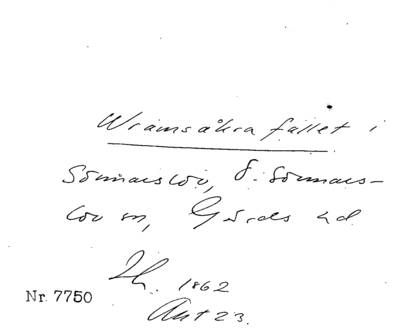 Wramsåkra fallet i
Sönnarslöv, Ö. Sönnars-
löv sn, Gärds hd
Th. 1862
Akt 23.
Nr. 7750